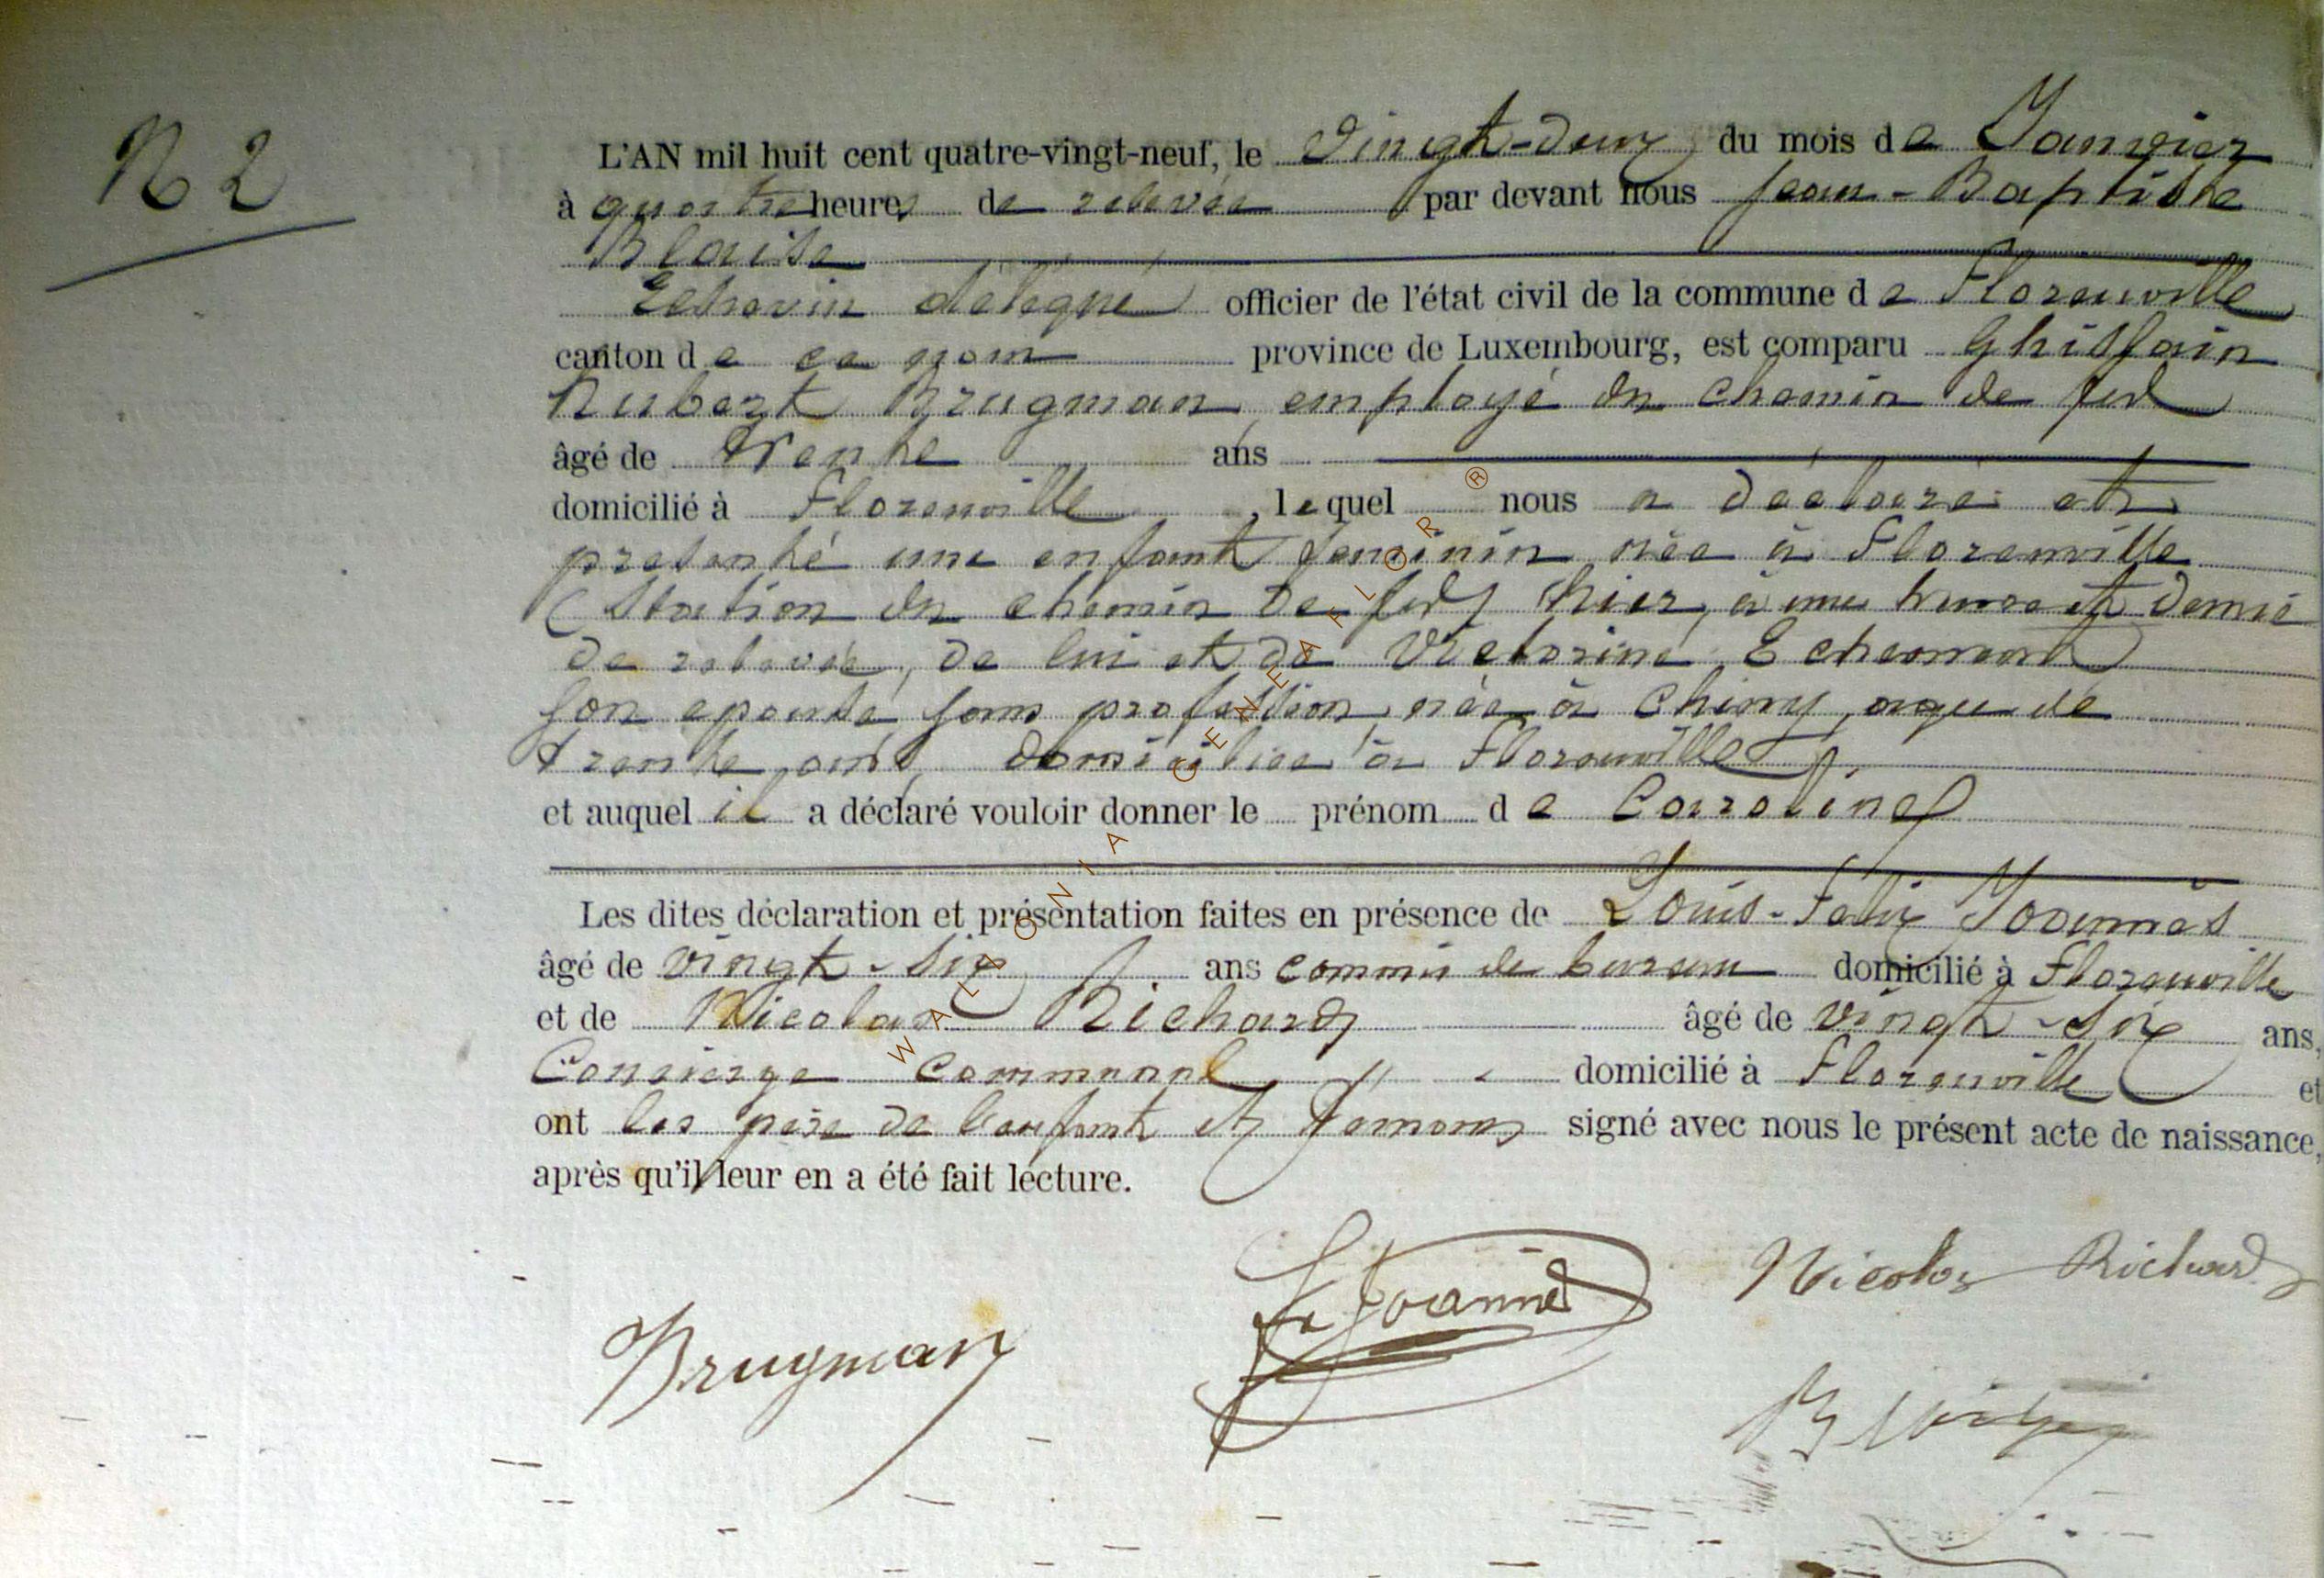 N 2
L'AN mil huit cent quatre-vingt-neuf, le vingt-deux du mois de Janvier
à quatre heures de relevée par devant nous Jean-Baptiste
Blaise
Echevin délégué officier de l'état civil de la commune de Florenville
canton de ce nom province de Luxembourg, est comparu Ghislain
Hubert Brugman, employé du chemin de fer
âgé de trente ans
domicilié à Florenville, lequel nous a déclaré et
presenté une enfant feminin née à Florenville
(Station du chemin de fer) hier, à une heure et demie
de relevée, de lui et de Victorine Echement
son epouse sans profession, née à Chiny, agée de
trente ans, domiciliée à Florenville
et auquel il a déclaré vouloir donner le prénom de Caroline
Les dites déclaration et présentation faites en présence de Louis-Felix Joannes
âgé de vingt-six ans commis de bureau domicilié à Florenville
et de Nicolas Richard âgé de vingt-six ans,
Concierge communal domicilié à Florenville et
ont les père de l'enfant et témoins signé avec nous le présent acte de naissance,
après qu'il leur en a été fait lecture.
Brugman
F Joannes
Nicolas Richard
Blaise
WALLONIA GENEAFLOR ®